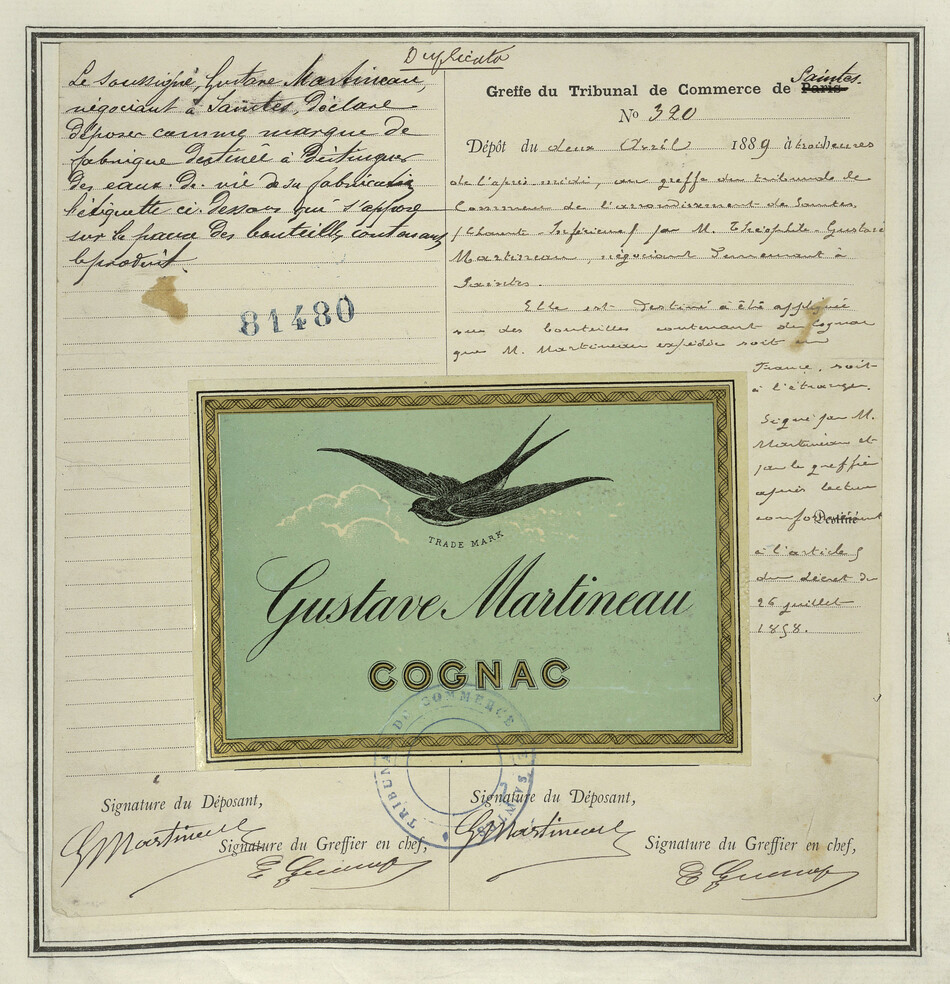 Duplicata
Le Soussigné, Gustave Martineau,
négociant à Saintes, Déclare
déposer comme marque de
fabrique destinée à Distinguer
Des eaux-de-vie de sa fabrication
l'étiquette ci-dessous qui s'appose
sur la panse Des bouteilles contenant
le produit.
81480
Greffe du Tribunal de Commerce de Paris Saintes
No 320
Dépôt du deux Avril 1889 à trois heures
de l'après midi, au greffe du tribunal de
Commerce de l'arrondissement de Saintes
(Charente-Inférieure) par M. Théophile-Gustave
Martineau, négociant demeurant à
Saintes.
Elle est destinée à être appliquée
sur des bouteilles contenant du cognac
que M. Martineau expédie soit en
France, soit
à l'étranger.
Signé par M.
Martineau et
par le greffier
après lecture
conformément
Destiné
à l'article 5
du décret du
26 juillet
1858.
TRADE MARK
Gustave Martineau
COGNAC
TRIBUNAL DE COMMERCE DE SAINTES
Signature du Déposant,
GMartineau
Signature du Greffier en chef,
Signature du Déposant,
GMartineau
Signature du Greffier en chef,